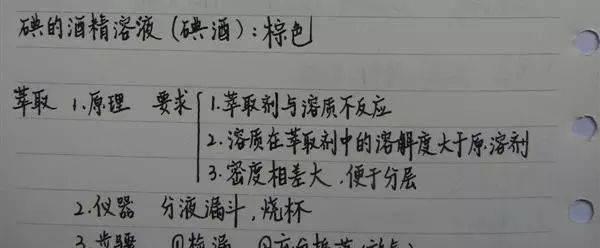 碘的酒精溶液(碘酒):棕色
萃取 1.原理 要求 1.萃取剂与溶质不反应
2.溶质在萃取剂中的溶解度大于原溶剂
3.密度相差大,便于分层
2.仪器 分液漏斗,烧杯
3.步骤 ①检漏